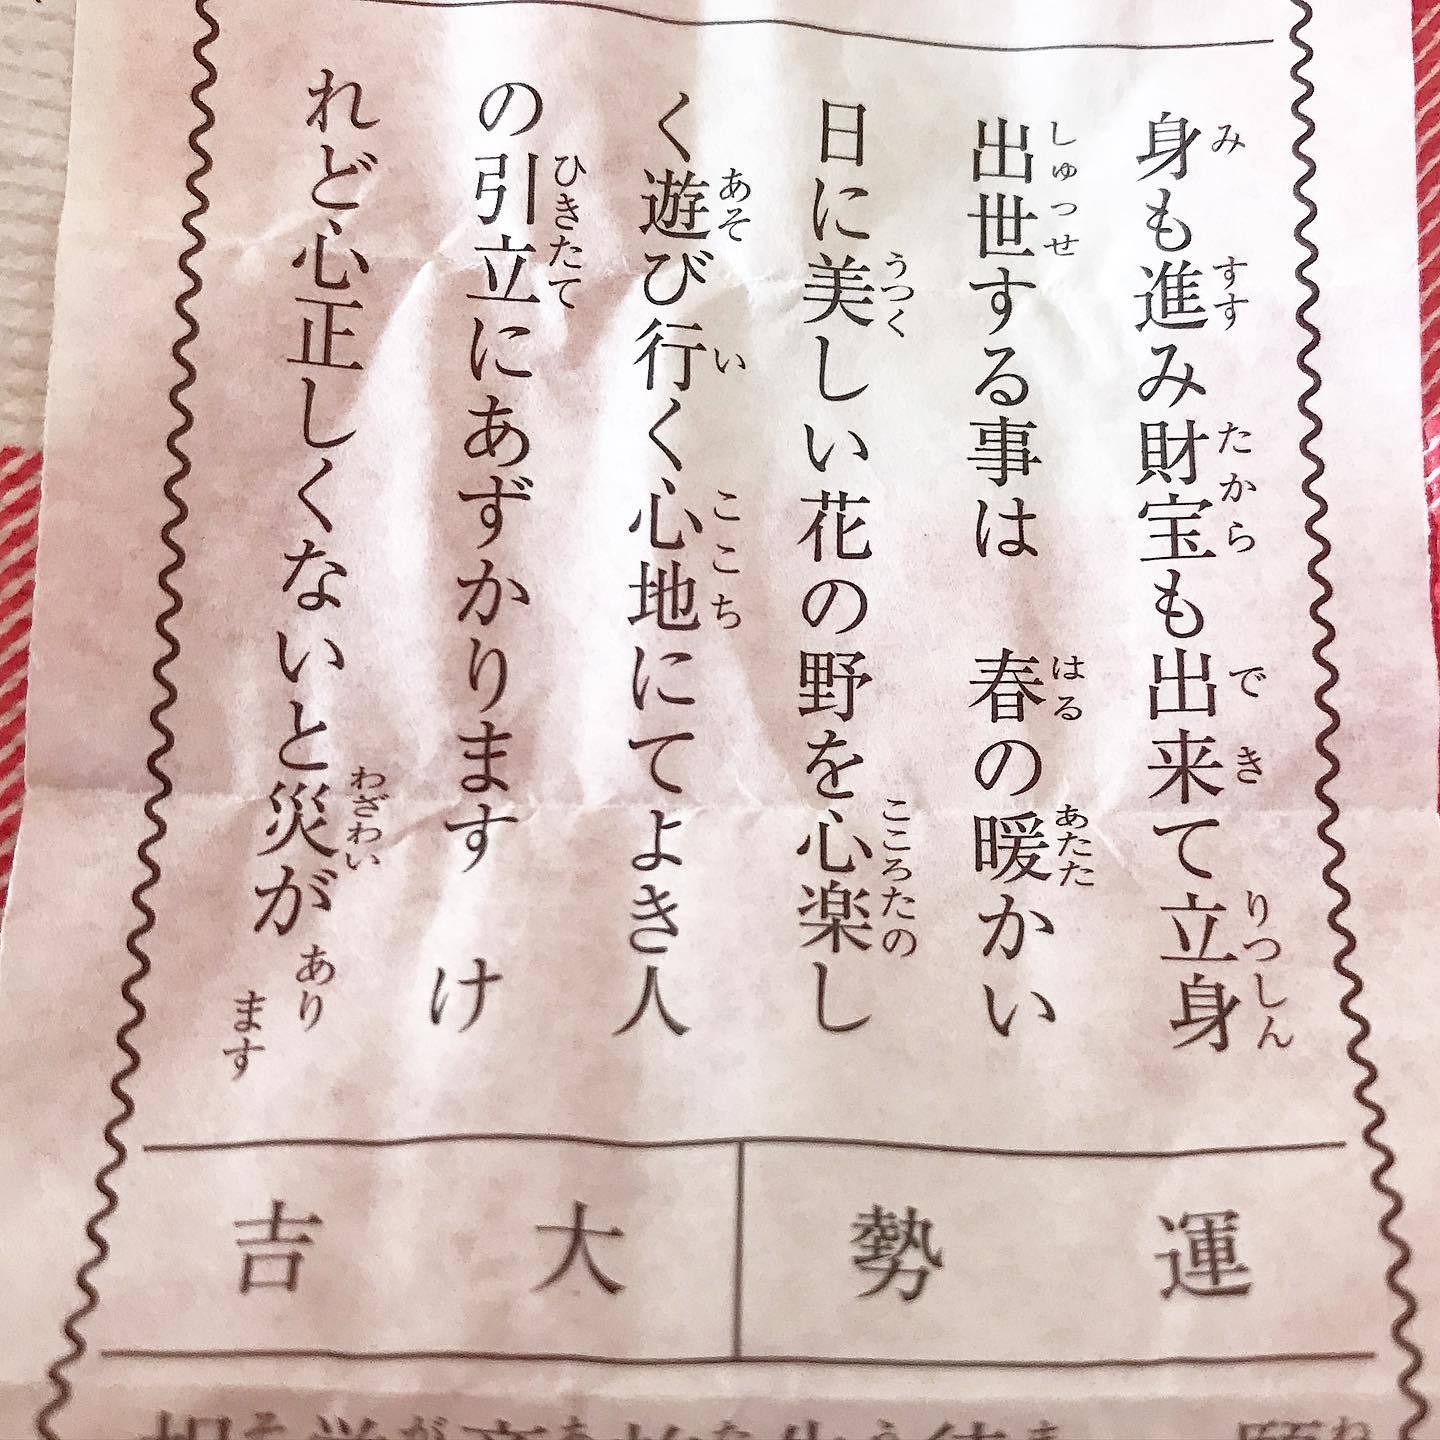 身も進み財宝も出来て立身
出世する事は　春の暖かい
日に美しい花の野を心楽し
く遊び行く心地にてよき人
の引立にあずかります　け
れど心正しくないと災があります
運勢
大吉